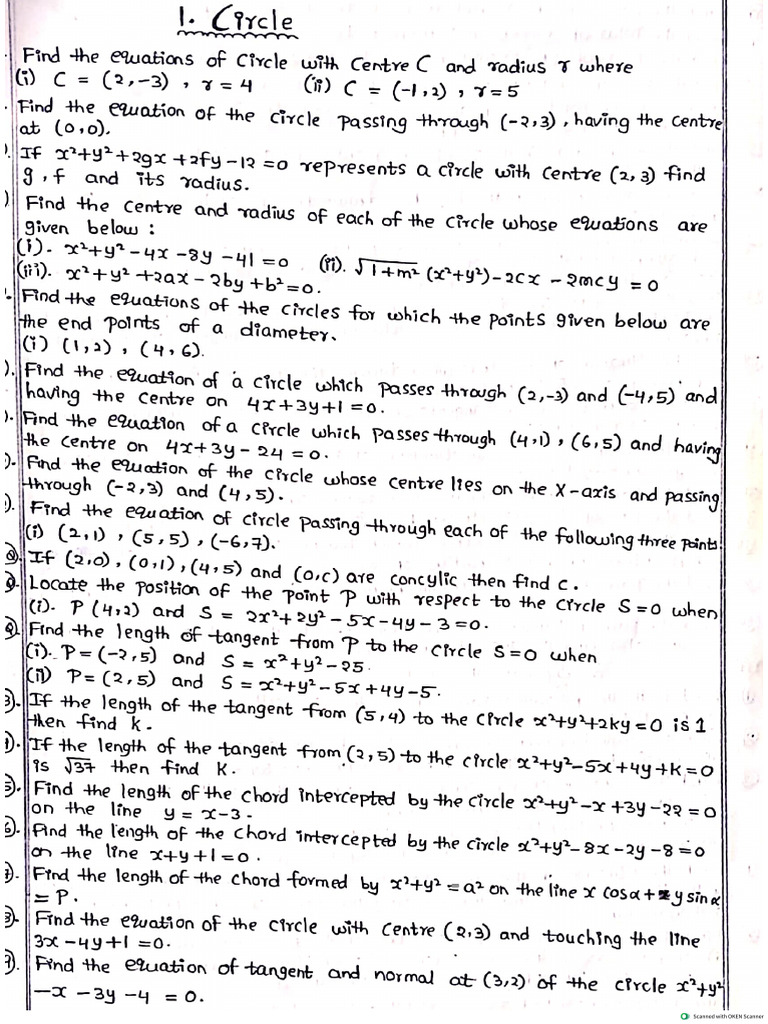 1. Circle
Find the equations of circle with centre C and radius r where
(i) C = (2,-3) , r = 4 (ii) C = (-1,2) , r = 5
Find the equation of the circle passing through (-2,3), having the centre
at (0,0).
If x²+y²+2gx+2fy-12=0 represents a circle with centre (2,3) find
g, f and its radius.
Find the centre and radius of each of the circle whose equations are
given below :
(i). x²+y²-4x-8y-41=0 (ii). √1+m² (x²+y²)-2cx-2mcy = 0
(iii). x²+y²+2ax-2by+b²=0.
Find the equations of the circles for which the points given below are
the end points of a diameter.
(i) (1,2) , (4,6).
Find the equation of a circle which passes through (2,-3) and (-4,5) and
having the centre on 4x+3y+1=0.
Find the equation of a circle which passes through (4,1), (6,5) and having
the centre on 4x+3y-24=0.
Find the equation of the circle whose centre lies on the X-axis and passing
through (-2,3) and (4,5).
Find the equation of circle passing through each of the following three points.
(i) (2,1) , (5,5) , (-6,7).
If (2,0), (0,1), (4,5) and (0,c) are concylic then find c.
Locate the position of the point P with respect to the circle S=0 when
(i). P(4,2) and S = 2x²+2y²-5x-4y-3=0.
Find the length of tangent from P to the circle S=0 when
(i). P=(-2,5) and S=x²+y²-25.
(ii) P=(2,5) and S=x²+y²-5x+4y-5.
3). If the length of the tangent from (5,4) to the circle x²+y²+2ky=0 is 1
then find k.
If the length of the tangent from (2,5) to the circle x²+y²-5x+4y+k=0
is √37 then find k.
5). Find the length of the chord intercepted by the circle x²+y²-x+3y-22=0
on the line y=x-3.
6). Find the length of the chord intercepted by the circle x²+y²-8x-2y-8=0
on the line x+y+1=0.
7). Find the length of the chord formed by x²+y²=a² on the line x cosα+y sinα
= P.
8). Find the equation of the circle with centre (2,3) and touching the line
3x-4y+1=0.
9). Find the equation of tangent and normal at (3,2) of the circle x²+y²
-x-3y-4=0.
Scanned with OKEN Scanner